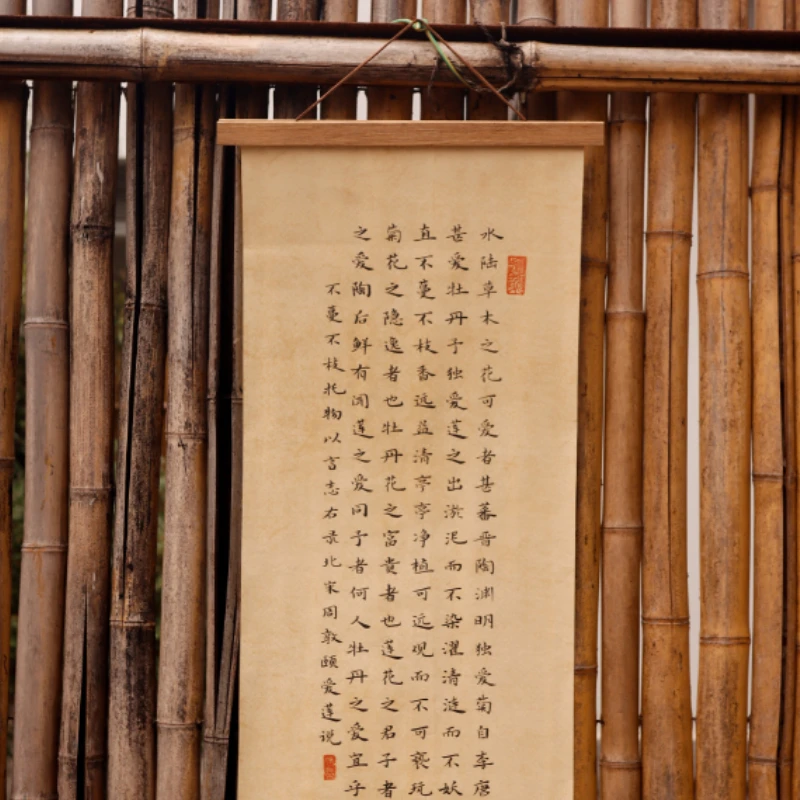 水陆草木之花可爱者甚蕃晋陶渊明独爱菊自李唐
甚爱牡丹予独爱莲之出淤泥而不染濯清涟而不妖
直不蔓不枝香远益清亭亭净植可远观而不可亵玩
菊花之隐逸者也牡丹花之富贵者也莲花之君子者
之爱陶后鲜有闻莲之爱同予者何人牡丹之爱宜乎
不蔓不枝托物以言志右录北宋周敦颐爱莲说